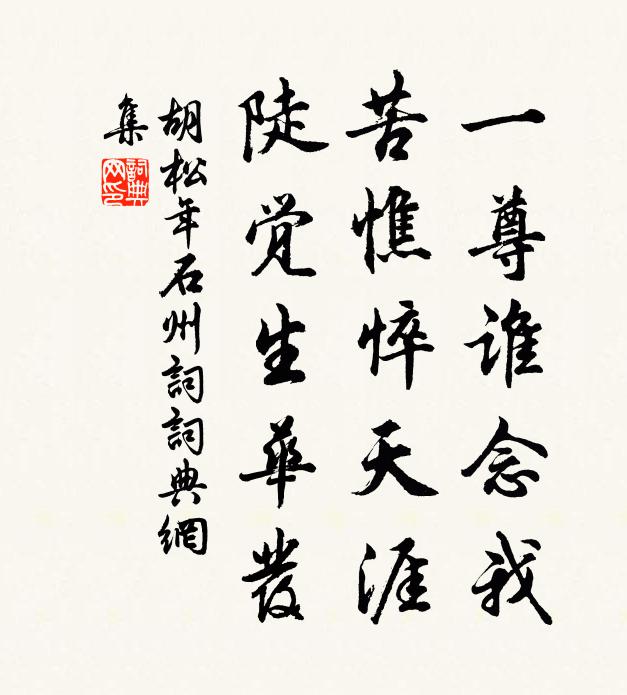 一尊谁念我
苦憔悴天涯
陡觉生華發
胡松年石州詞詞典網
集
詞典
网印